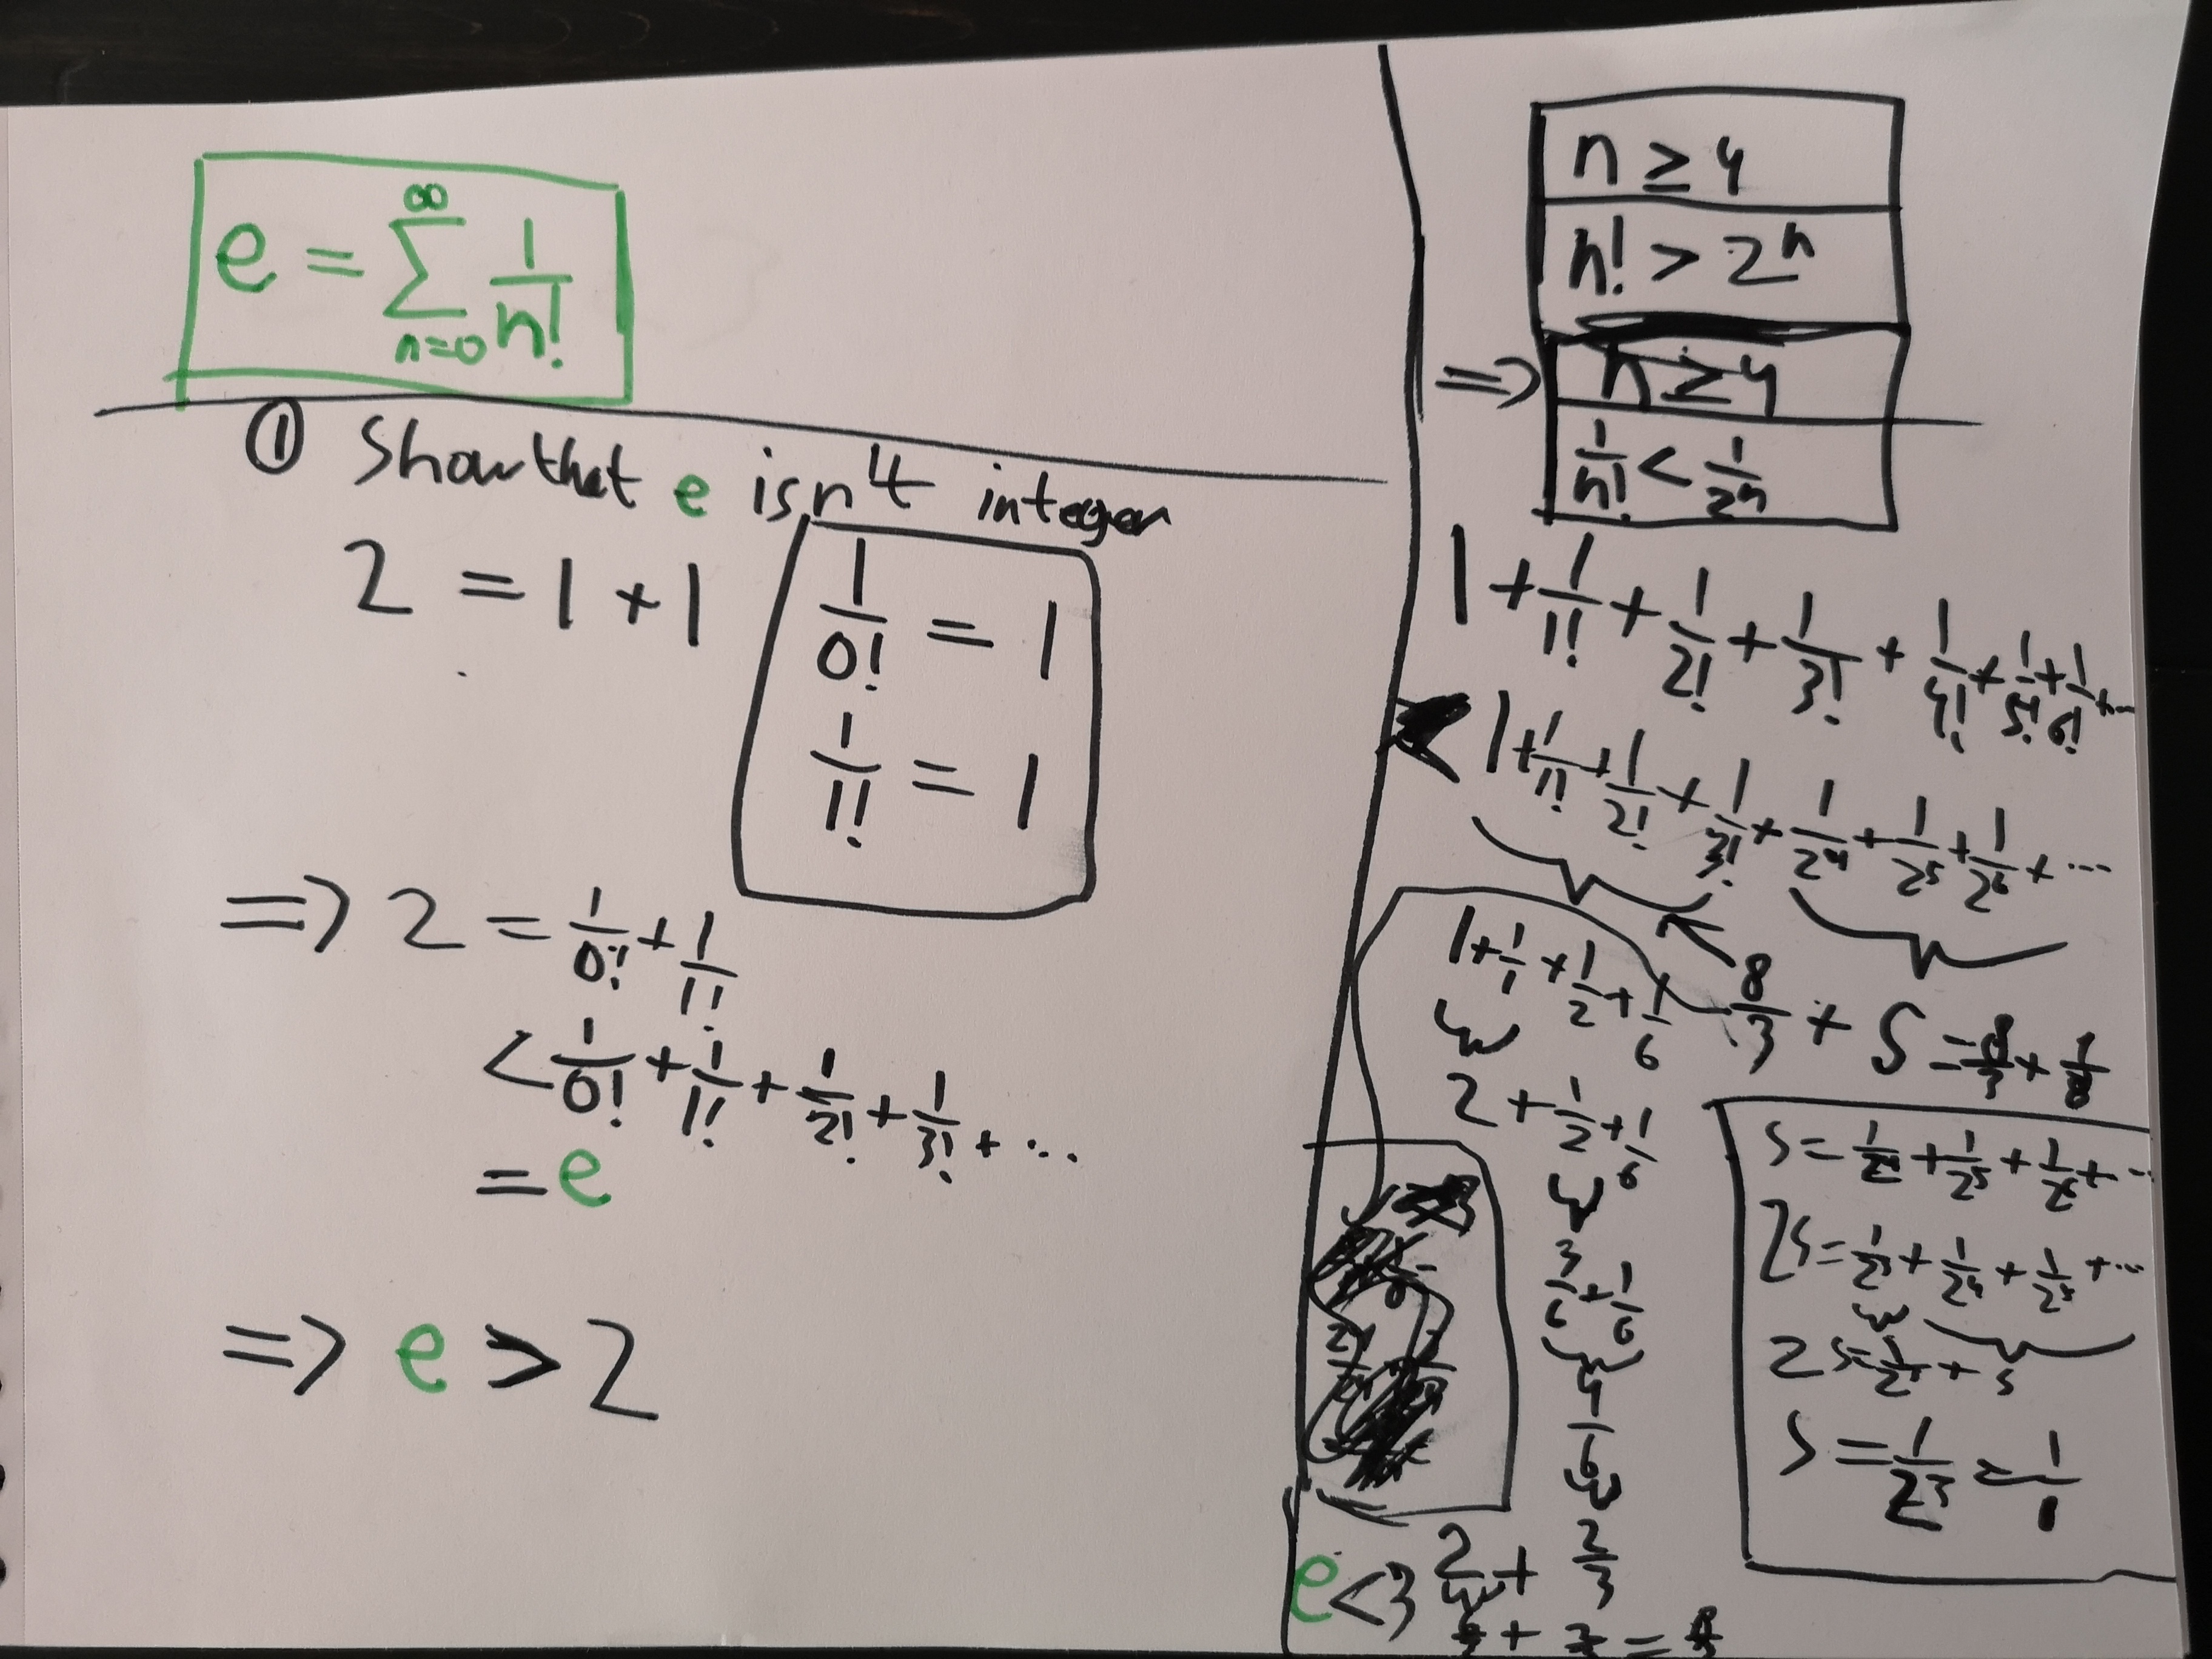 e = ∑_{n=0}^{∞} 1/n!
① Show that e isn't integer
2 = 1 + 1
1/0! = 1
1/1! = 1
=> 2 = 1/0! + 1/1!
< 1/0! + 1/1! + 1/2! + 1/3! + ...
= e
=> e > 2
n ≥ 4
n! > 2^n
=> n ≥ 4
1/n! < 1/2^n
1 + 1/1! + 1/2! + 1/3! + 1/4! + 1/5! + 1/6! + ...
< 1 + 1/1! + 1/2! + 1/3! + 1/2^4 + 1/2^5 + 1/2^6 + ...
8/3 + S = 8/3 + 1/8
1 + 1/1 + 1/2 + 1/6
2 + 1/2 + 1/6
3/6 + 1/6
4/6
2 + 2/3
S = 1/2^4 + 1/2^5 + 1/2^6 + ...
2S = 1/2^3 + 1/2^4 + 1/2^5 + ...
2S = 1/2^3 + S
S = 1/2^3 =
e < 3